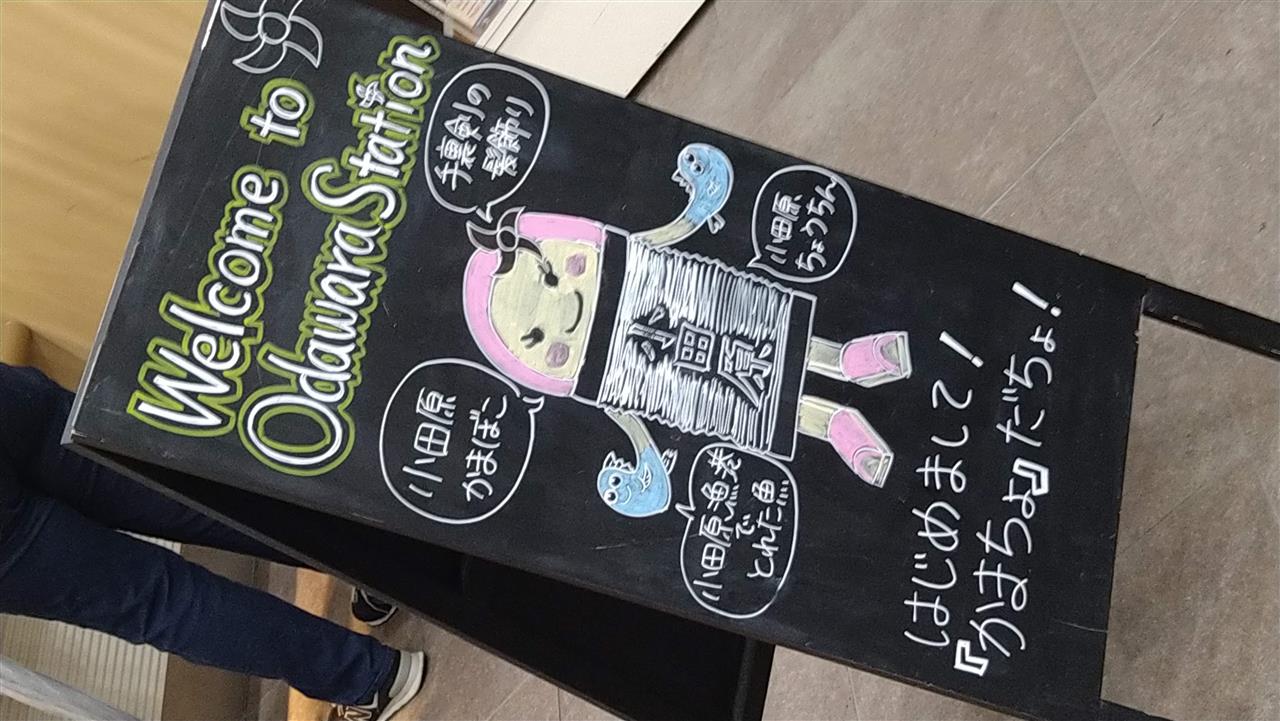 Welcome to
Odawara Station
小田原
かまぼこ
小田原
ちょうちん
小田原
小田原漁港
で
とれた魚
はじめまして！
『かまちょ』だちょ！